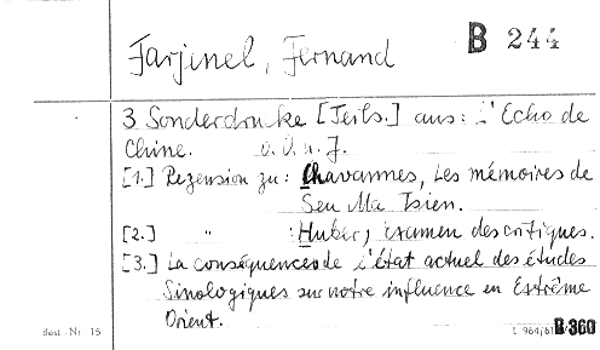 Farjinel, Fernand
B 244
3 Sonderdrucke [Teils.] aus: L'Echo de
Chine. o. O. u. J.
[1.] Rezension zu: Chavannes, Les mémoires de
Seu Ma Tsien.
[2.] " : Huber, examen des critiques.
[3.] La conséquences de l'état actuel des études
Sinologiques sur notre influence en Extrême
Orient.
Best.-Nr. 15
B 360